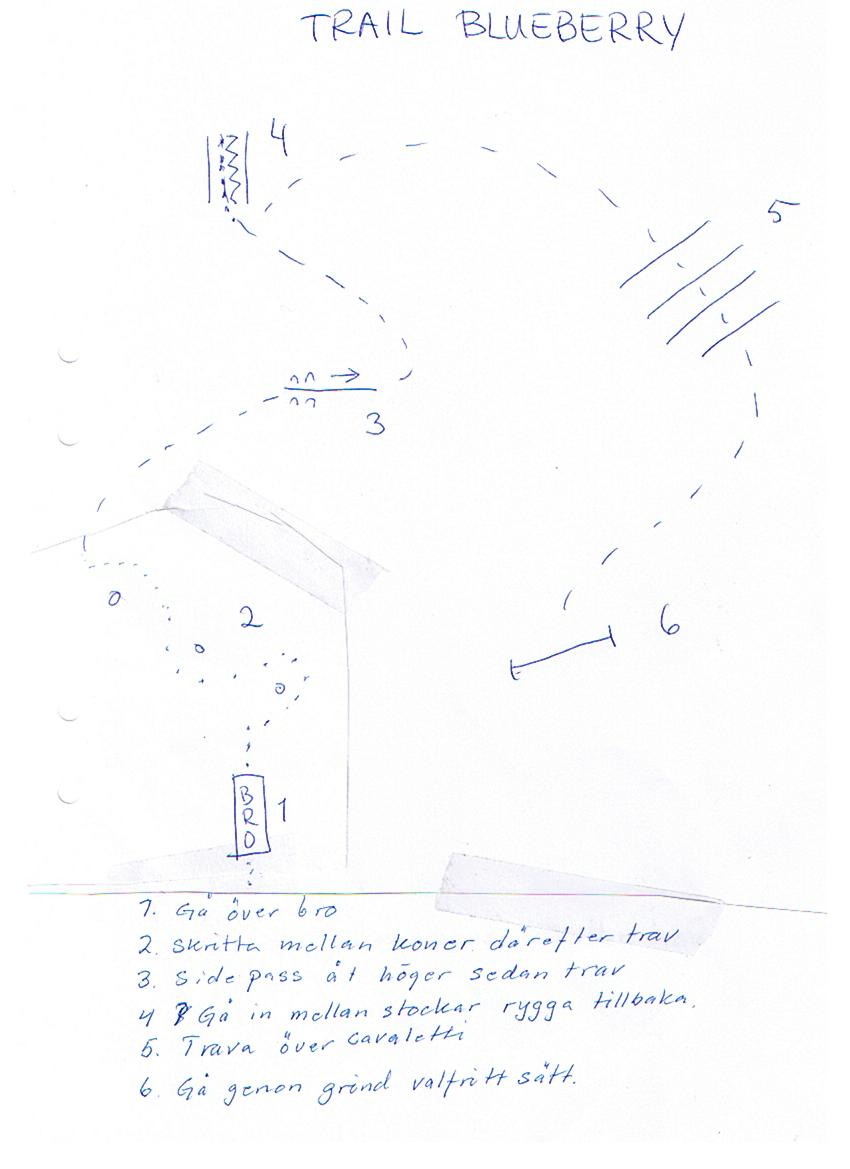 TRAIL BLUEBERRY
4
5
3
2
6
BRO
1
1. Gå över bro
2. Skritta mellan koner därefter trav
3. Side pass åt höger sedan trav
4 Gå in mellan stockar rygga tillbaka.
5. Trava över cavaletti
6. Gå genon grind valfritt sätt.